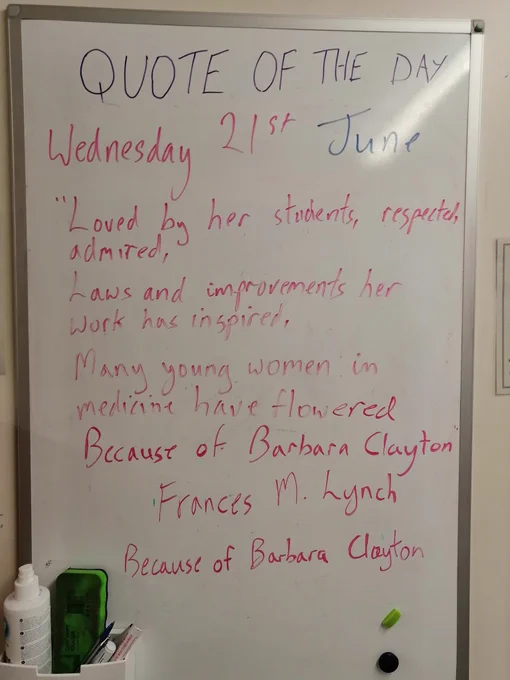 QUOTE OF THE DAY
Wednesday 21st June
"Loved by her students, respected,
admired,
Laws and improvements her
work has inspired.
Many young women in
medicine have flowered
Because of Barbara Clayton"
Frances M. Lynch
Because of Barbara Clayton